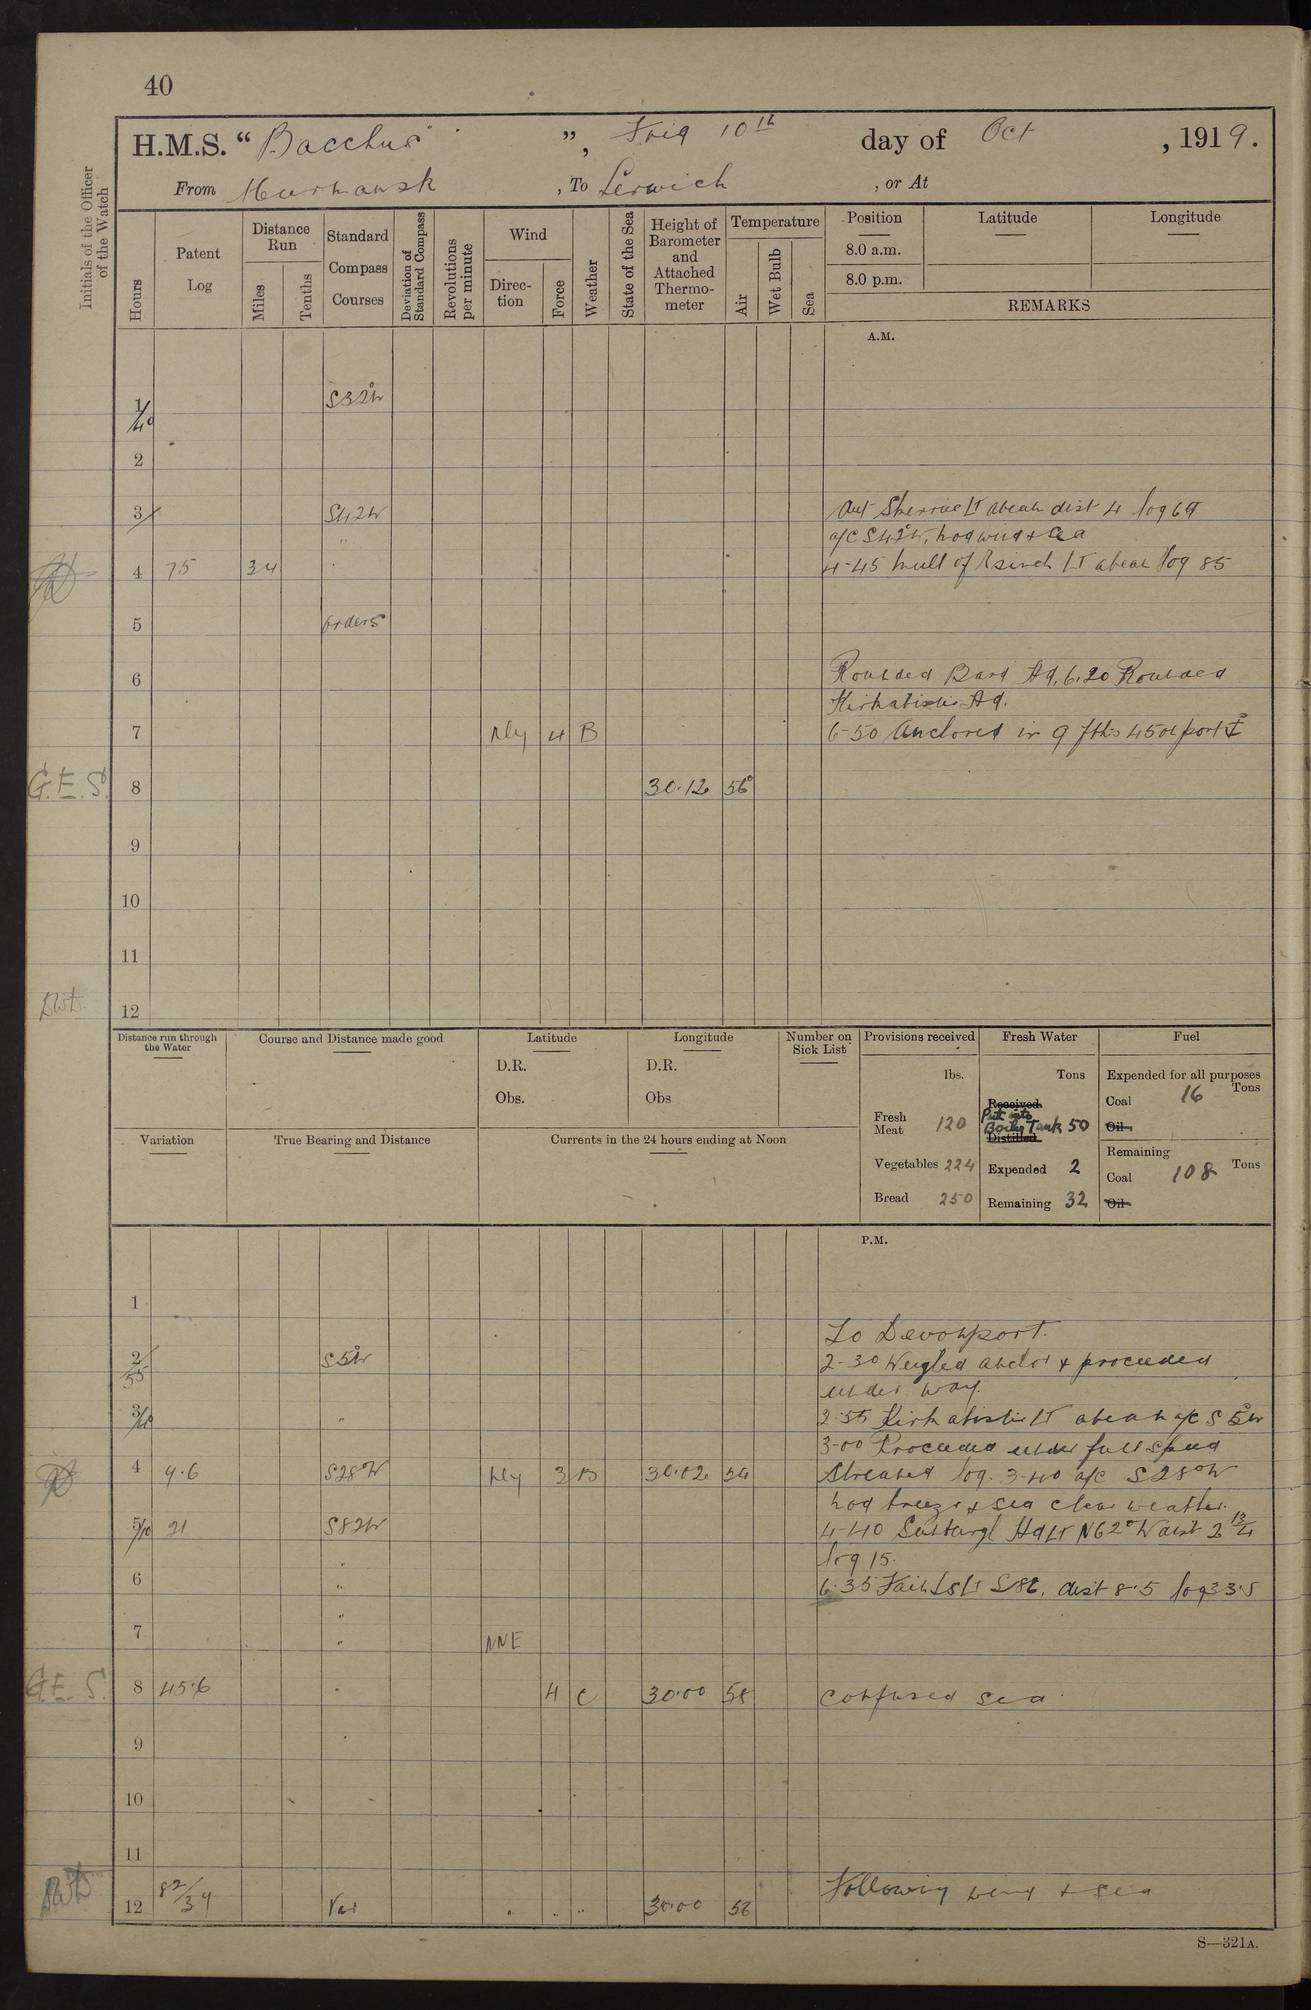 40
H.M.S. “ Bacchus ”, Frid 10th day of Oct , 1919.
From Murmansk , To Lerwick , or At
Initials of the Officer of the Watch
Hours
Patent Log
Distance Run
Miles
Tenths
Standard Compass Courses
Deviation of Standard Compass
Revolutions per minute
Wind
Direction
Force
Weather
State of the Sea
Height of Barometer and Attached Thermometer
Temperature
Air
Wet Bulb
Sea
Position
Latitude
Longitude
8.0 a.m.
8.0 p.m.
REMARKS
A.M.
1/40 S32°W
2
3 S42W Out Skerries Lt abeam dist 4 log 69
" a/c S42°W, mod wind & sea
4 75 34 4-45 Lt abeam log 85
5 orders
6 Rounded Bard Hd, 6.20 Rounded
Kirkabister Hd.
7 Nly 4 B 6-50 Anchored in 9 fths 45 on port
G.E.S. 8 30.12 56°
9
10
11
12
Distance run through the Water
Course and Distance made good
Latitude
D.R.
Obs.
Longitude
D.R.
Obs
Number on Sick List
Provisions received
lbs.
Fresh Meat 120
Vegetables 224
Bread 250
Fresh Water
Tons
Received
Put into
Boiler Tank 50
Distilled
Expended 2
Remaining 32
Fuel
Expended for all purposes
Coal 16 Tons
Oil
Remaining
Coal 108 Tons
Oil
Variation
True Bearing and Distance
Currents in the 24 hours ending at Noon
P.M.
1
To Devonport.
2/55 S5°W 2-30 Weighed anchor & proceeded
under way.
3/40 " 2.55 Kirkabister Lt abeam a/c S 5°W
3-00 Proceeded under full speed
4 9.6 S28°W Nly 3 B 30.02 54 Streamed log. 3-40 a/c S28°W
mod breeze & sea clear weather.
5/10 21 S82W 4-40 Hd Lt N62°W dist 2 13/4
" log 15.
6 " 6.35 Fair Is Lt S86, dist 8.5 log 33.5
"
7 " NNE
G.E.S. 8 45.6 " 4 C 30.00 58 confused sea.
9
10
11
12 82/34 Var " " " 30.00 56 Following wind & sea
S—321A.